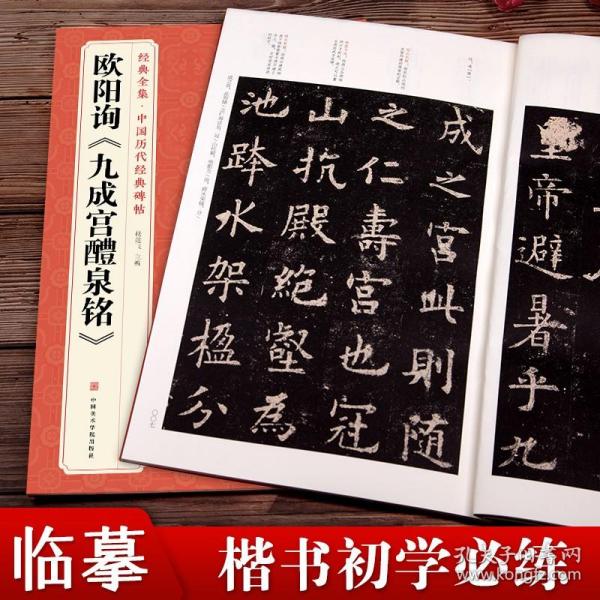 经典全集·中国历代经典碑帖
欧阳询《九成宫醴泉铭》
中国美术学院出版社
皇帝避暑乎九
成之宫此则随
之仁寿宫也冠
山抗殿绝壑为
池跨水架楹分
〇〇七
临摹
楷书初学必练
孔夫子旧书网